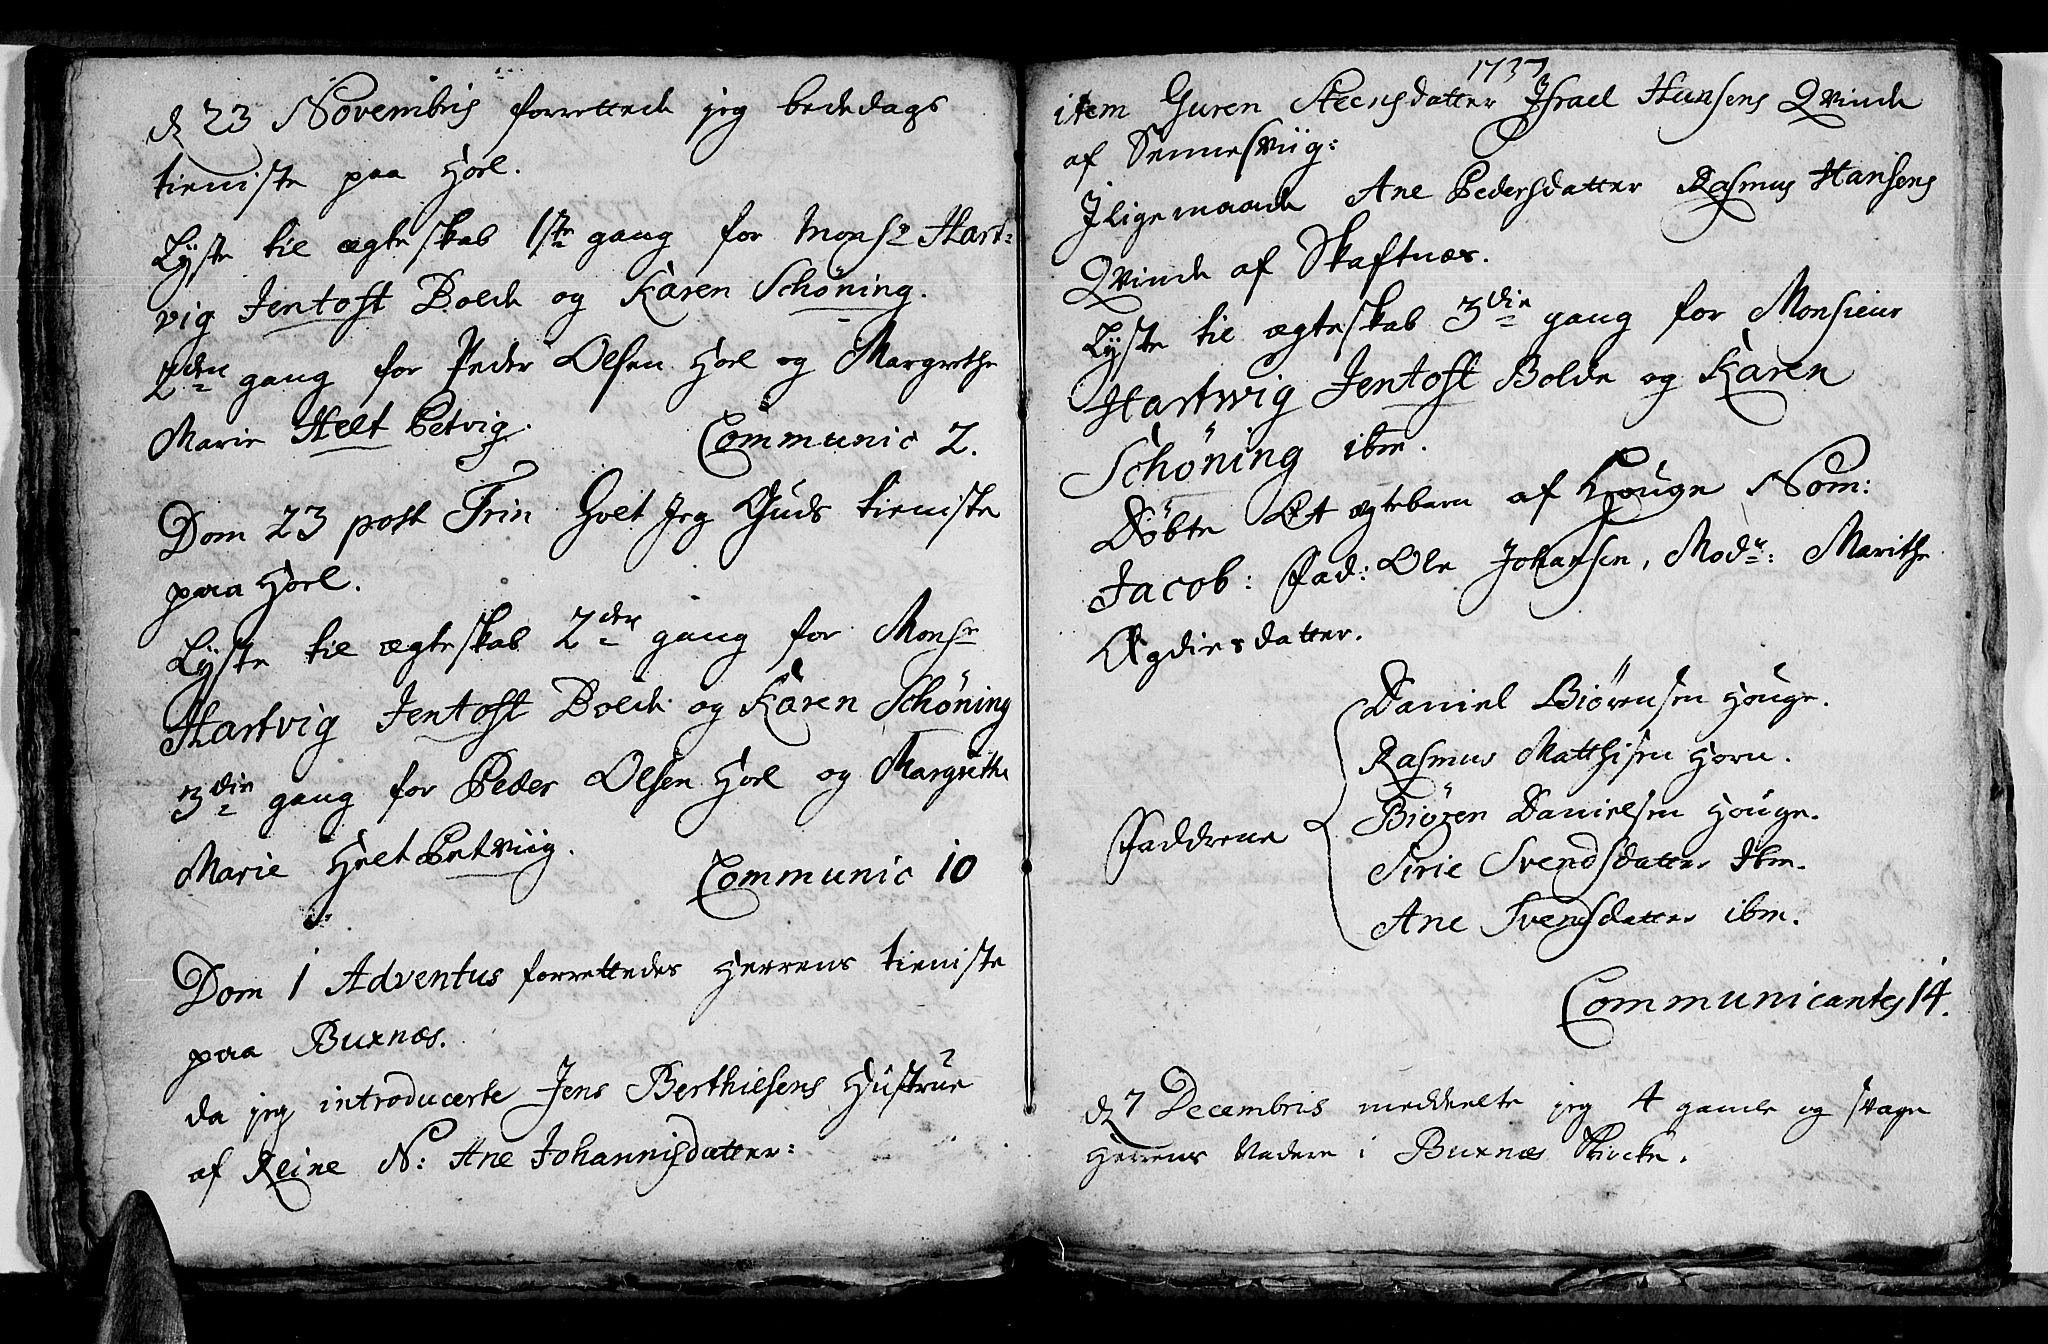 d 23 Novembris forrettede jeg bededags
tieniste paa Hoel.
Lyste til ægteskab 1ste gang for Monsr Hart-
vig Jentoft Bolde og Karen Schöning.
2den gang for Peder Olsen Hoel og Margrethe
Marie Helt Petvig. Communic 2.
Dom 23 post Trin holt Jeg Guds tieniste
paa Hoel.
Lyste til ægteskab 2den gang for Monsr
Hartvig Jentoft Bolde og Karen Schöning
3die gang for Peder Olsen Hoel og Margrethe
Marie Helt Petviig. Communic 10
Dom 1 Adventus forrettedes Herrens tieniste
paa Buxnæs.
da jeg introducerte Jens Berthielsens Hustrue
af Reine N: Ane Johannisdatter:
1737
item Guren Steensdatter Israel Hansens Qvinde
af Sennesviig:
Jligemaade Ane Pedersdatter Rasmus Hansens
Qvinde af Skaftnæs.
Lyste til ægteskab 3die gang for Monsieur
Hartwig Jentoft Bolde og Karen
Schöning ibm.
Döbte Et ægtebarn af Houge Nom:
Jacob: Fad: Ole Johansen, Modr: Marithe
Ogdiesdatter.
Daniel Biörensen Houge.
Rasmus Matthisen Horn.
Faddrene Biören Danielsen Houge.
Sirie Svendsdatter Ibm.
Ane Svensdatter ibm.
Communicantes 14.
d 7 Decembris meddeelte jeg 4 gamle og svage
Herrens Nadere i Buxnæs Kircke.